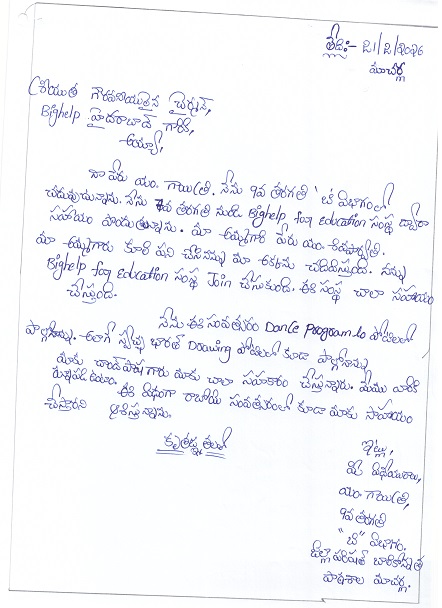 తేది:- 21/2/2026
మాచర్ల
శ్రీయుత గౌరవనీయులైన చైర్మన్,
Bighelp హైదరాబాద్ గారికి,
అయ్యా,
నా పేరు యం. గాయిత్రి. నేను 9వ తరగతి "బి" విభాగంలో
చదువుచున్నాను. నేను 7వ తరగతి నుండి Bighelp for Education సంస్థ ద్వారా
సహాయం పొందుతున్నాను. మా అమ్మగారి పేరు యం. శివపార్వతి.
మా అమ్మగారు కూలి పని చేసి నన్ను మా అక్కను చదివిస్తుంది. నన్ను
Bighelp for Education సంస్థ Join చేసుకుంది. ఈ సంస్థ చాలా సహాయం
చేస్తుంది.
నేను ఈ సంవత్సరం Dance program lo పోటీలలో
పాల్గొన్నాను. అలాగే స్వచ్ఛ భారత్ Drawing పోటీలలో కూడా పాల్గొన్నాను
మాకు చాంద్ పాష గారు మాకు చాలా సహకారం చేస్తున్నారు. మేము వారికి
రుణపడి ఉంటాం. ఈ విధంగా రాబోయే సంవత్సరంలో కూడా మాకు సాహాయం
చేస్తారని ఆశిస్తున్నాను.
కృతజ్ఞతలతో
ఇట్లు,
మీ విధేయురాలు,
యం. గాయిత్రి,
9వ తరగతి
"బి" విభాగం.
జిల్లా పరిషత్ బాలికోన్నత
పాఠశాల మాచర్ల.